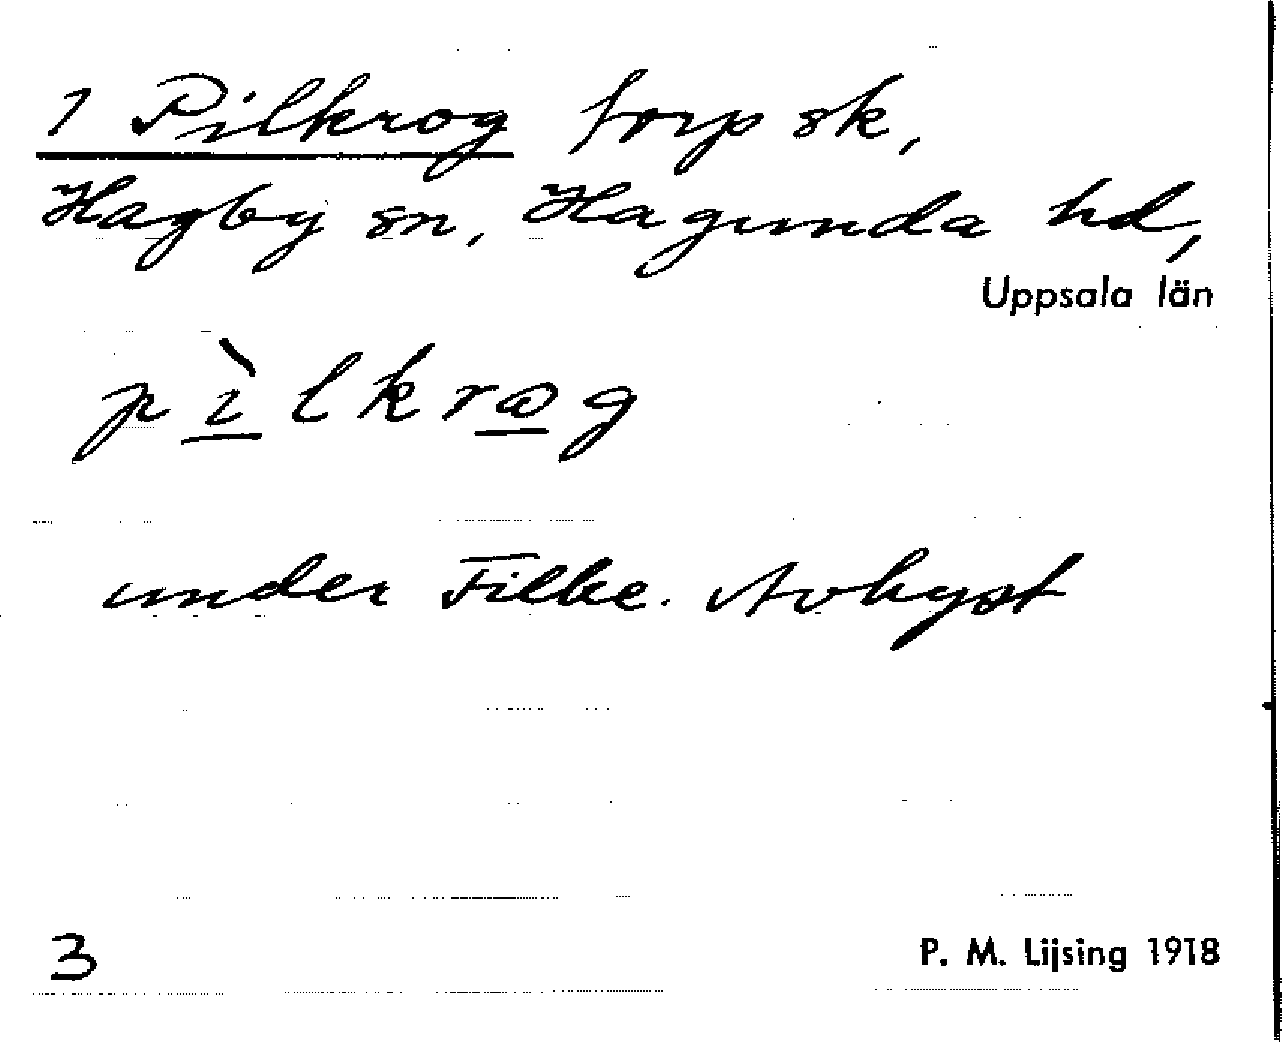 1 Pilkrog torp sk,
Hagby sn, Hagunda hd,
Uppsala län
pìlkrog
under Filke. Avhyst
3
P. M. Lijsing 1918